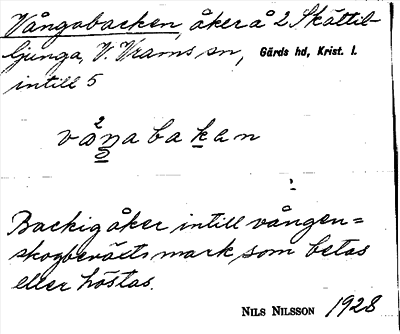 Vångabacken, åker å 2 Skättil-
ljunga, V. Vrams sn, Gärds hd, Krist. l.
intill 5
våŋabakan
Backig åker intill vången =
skogbeväxt mark, som betas
eller höstas.
NILS NILSSON 1928